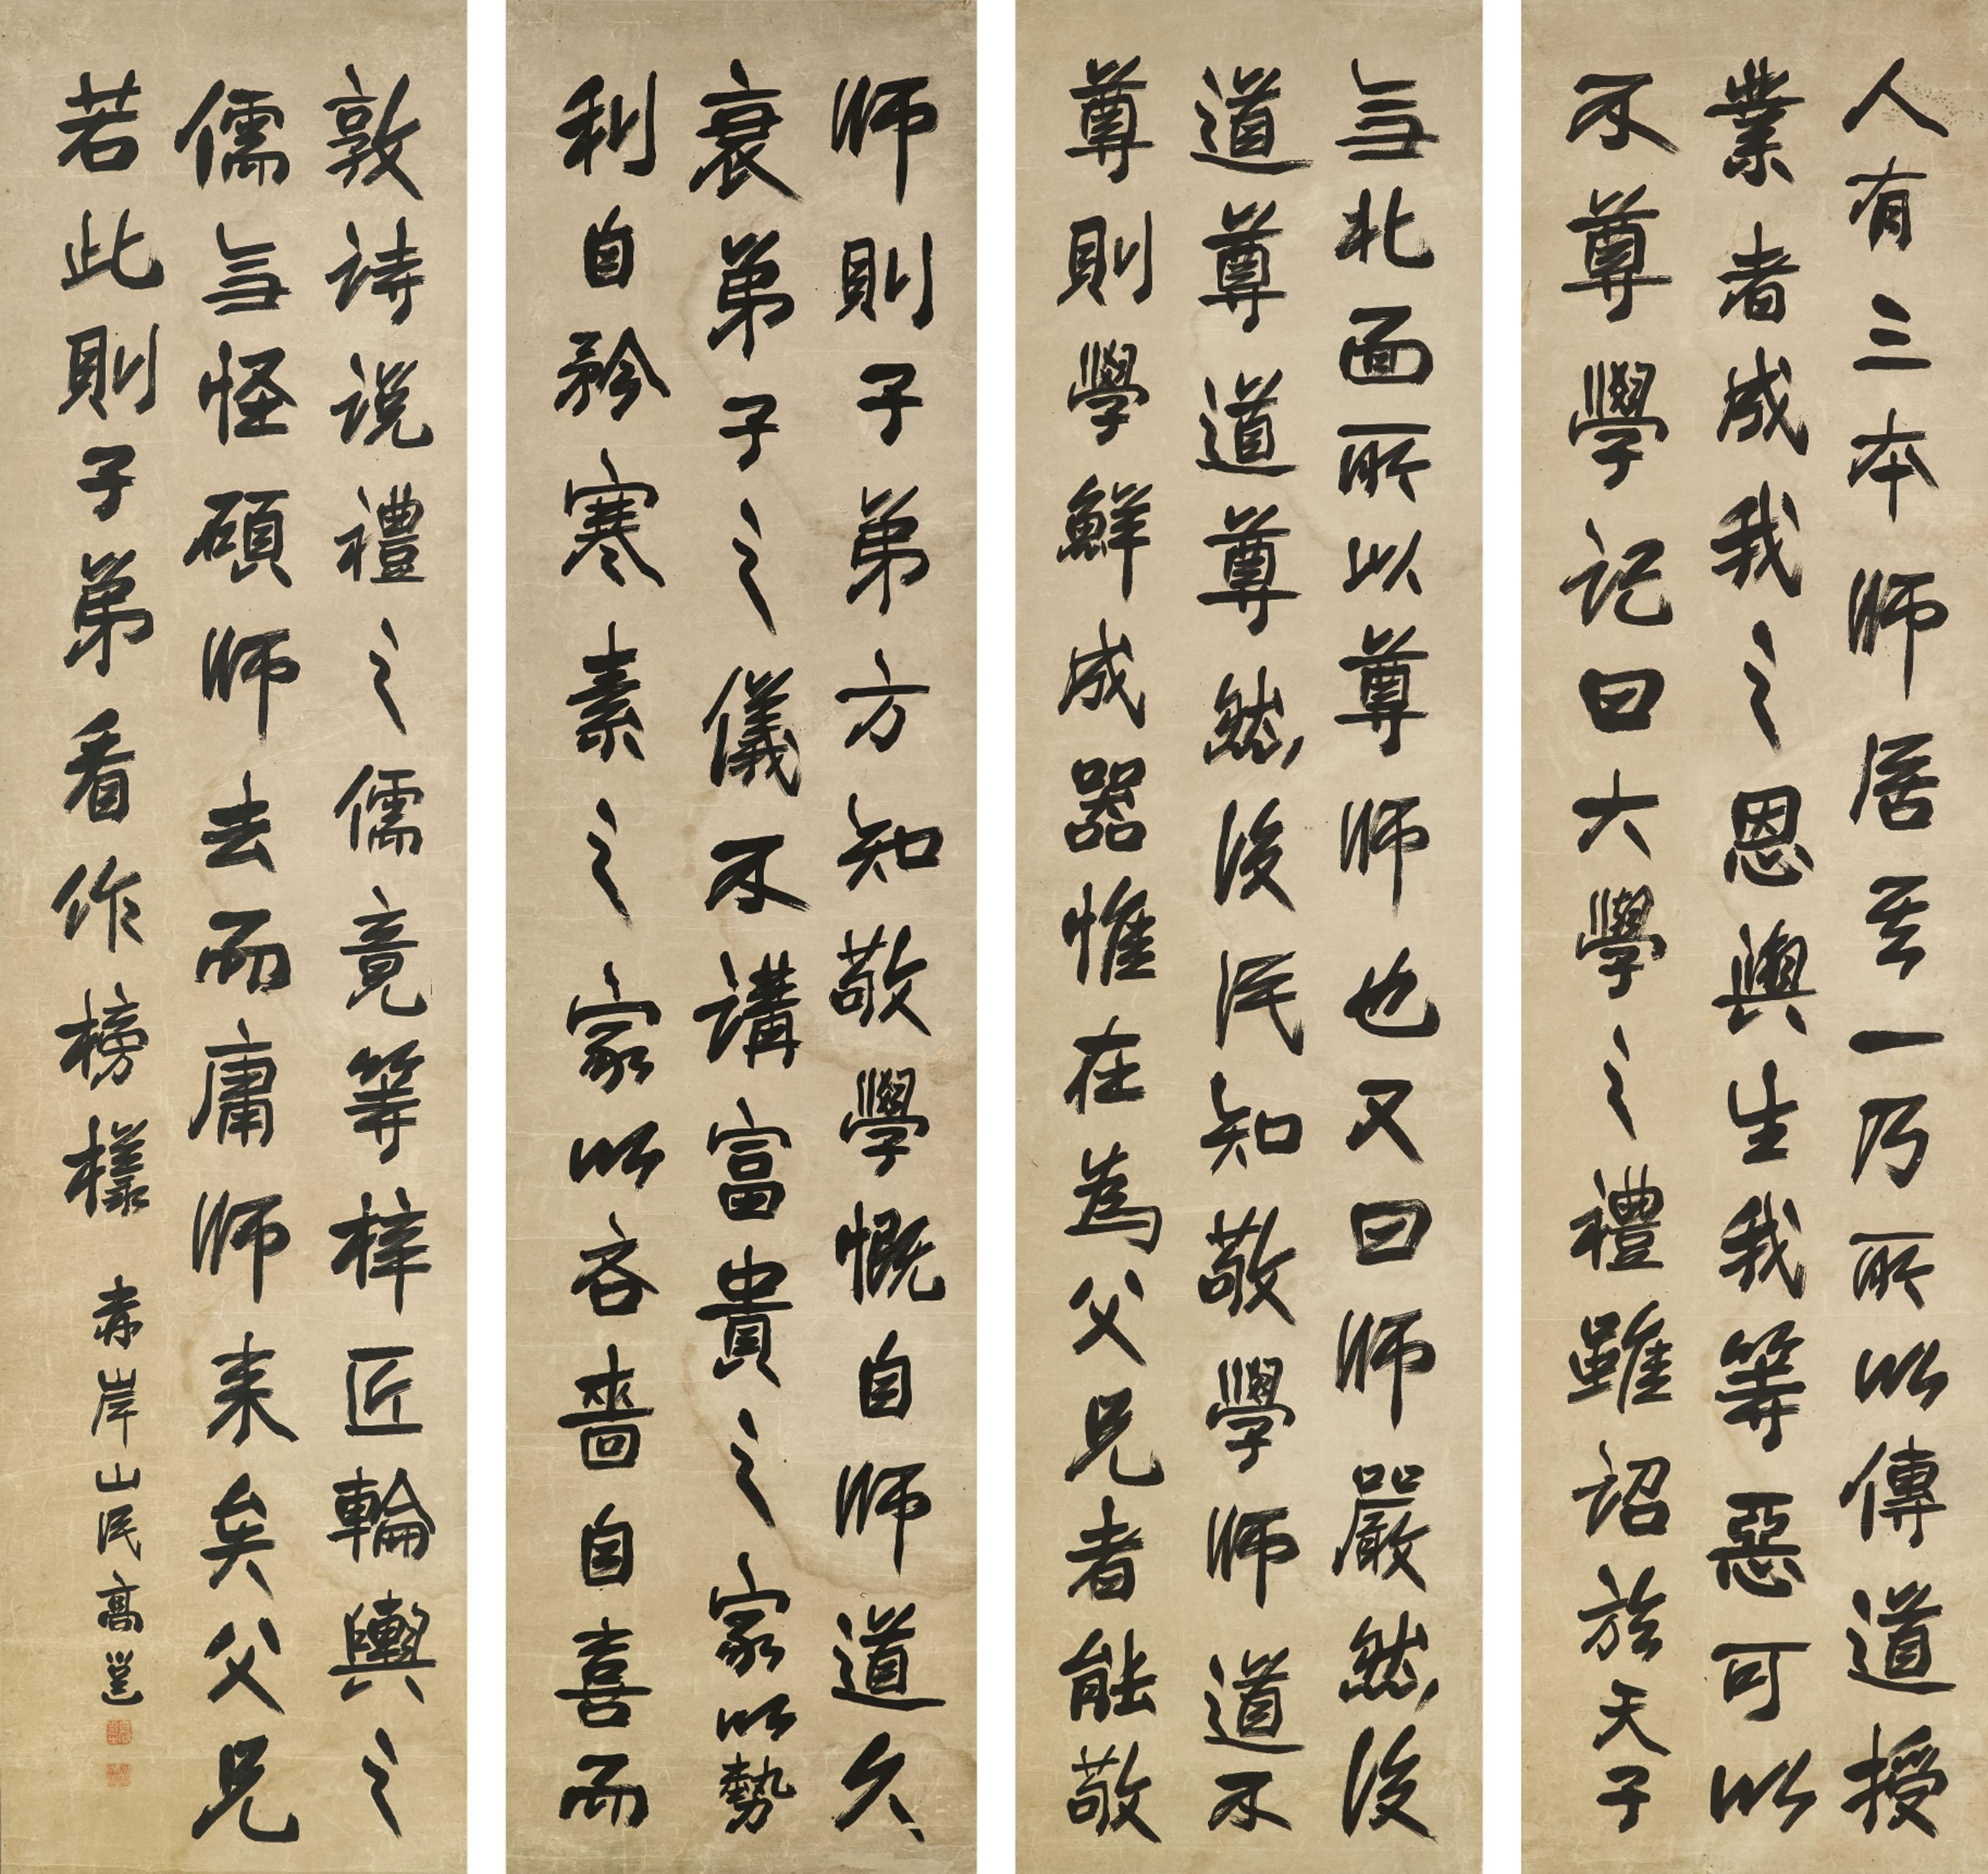 人有三本师居其一乃所以傳道授
業者成我之恩與生我等惡可以
不尊學記曰大學之禮雖詔於天子
无北面所以尊师也又曰师嚴然後
道尊道尊然後民知敬學师道不
尊則學鮮成器惟在為父兄者能敬
师則子弟方知敬學慨自师道久
衰弟子之儀不講富貴之家以勢
利自矜寒素之家以吝嗇自喜而
敦诗说禮之儒竟等梓匠輪輿之
儒无怪碩师去而庸师来矣父兄
若此則子弟看作榜樣
赤岸山民高邕